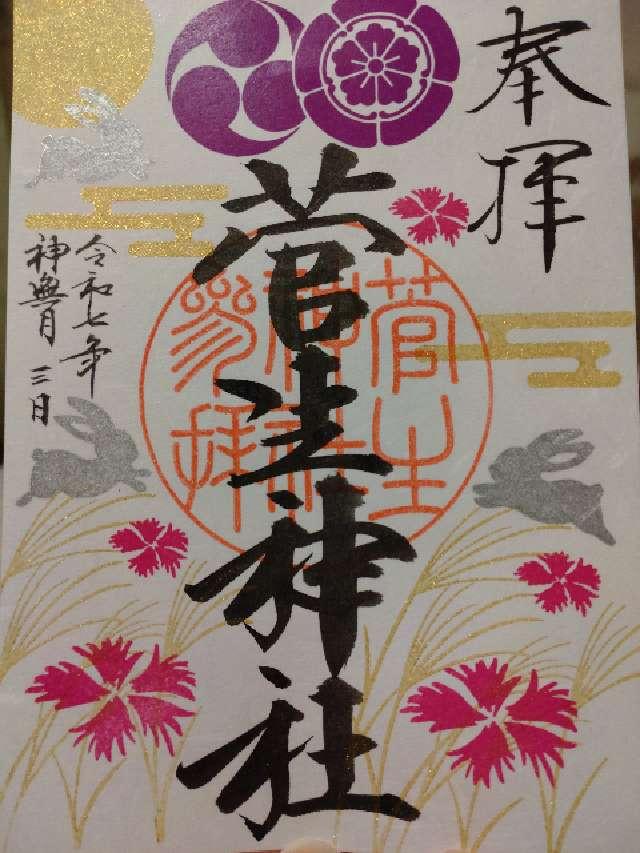 奉拝
菅生神社
菅生
神社
参拝
令和七年
神無月 三日